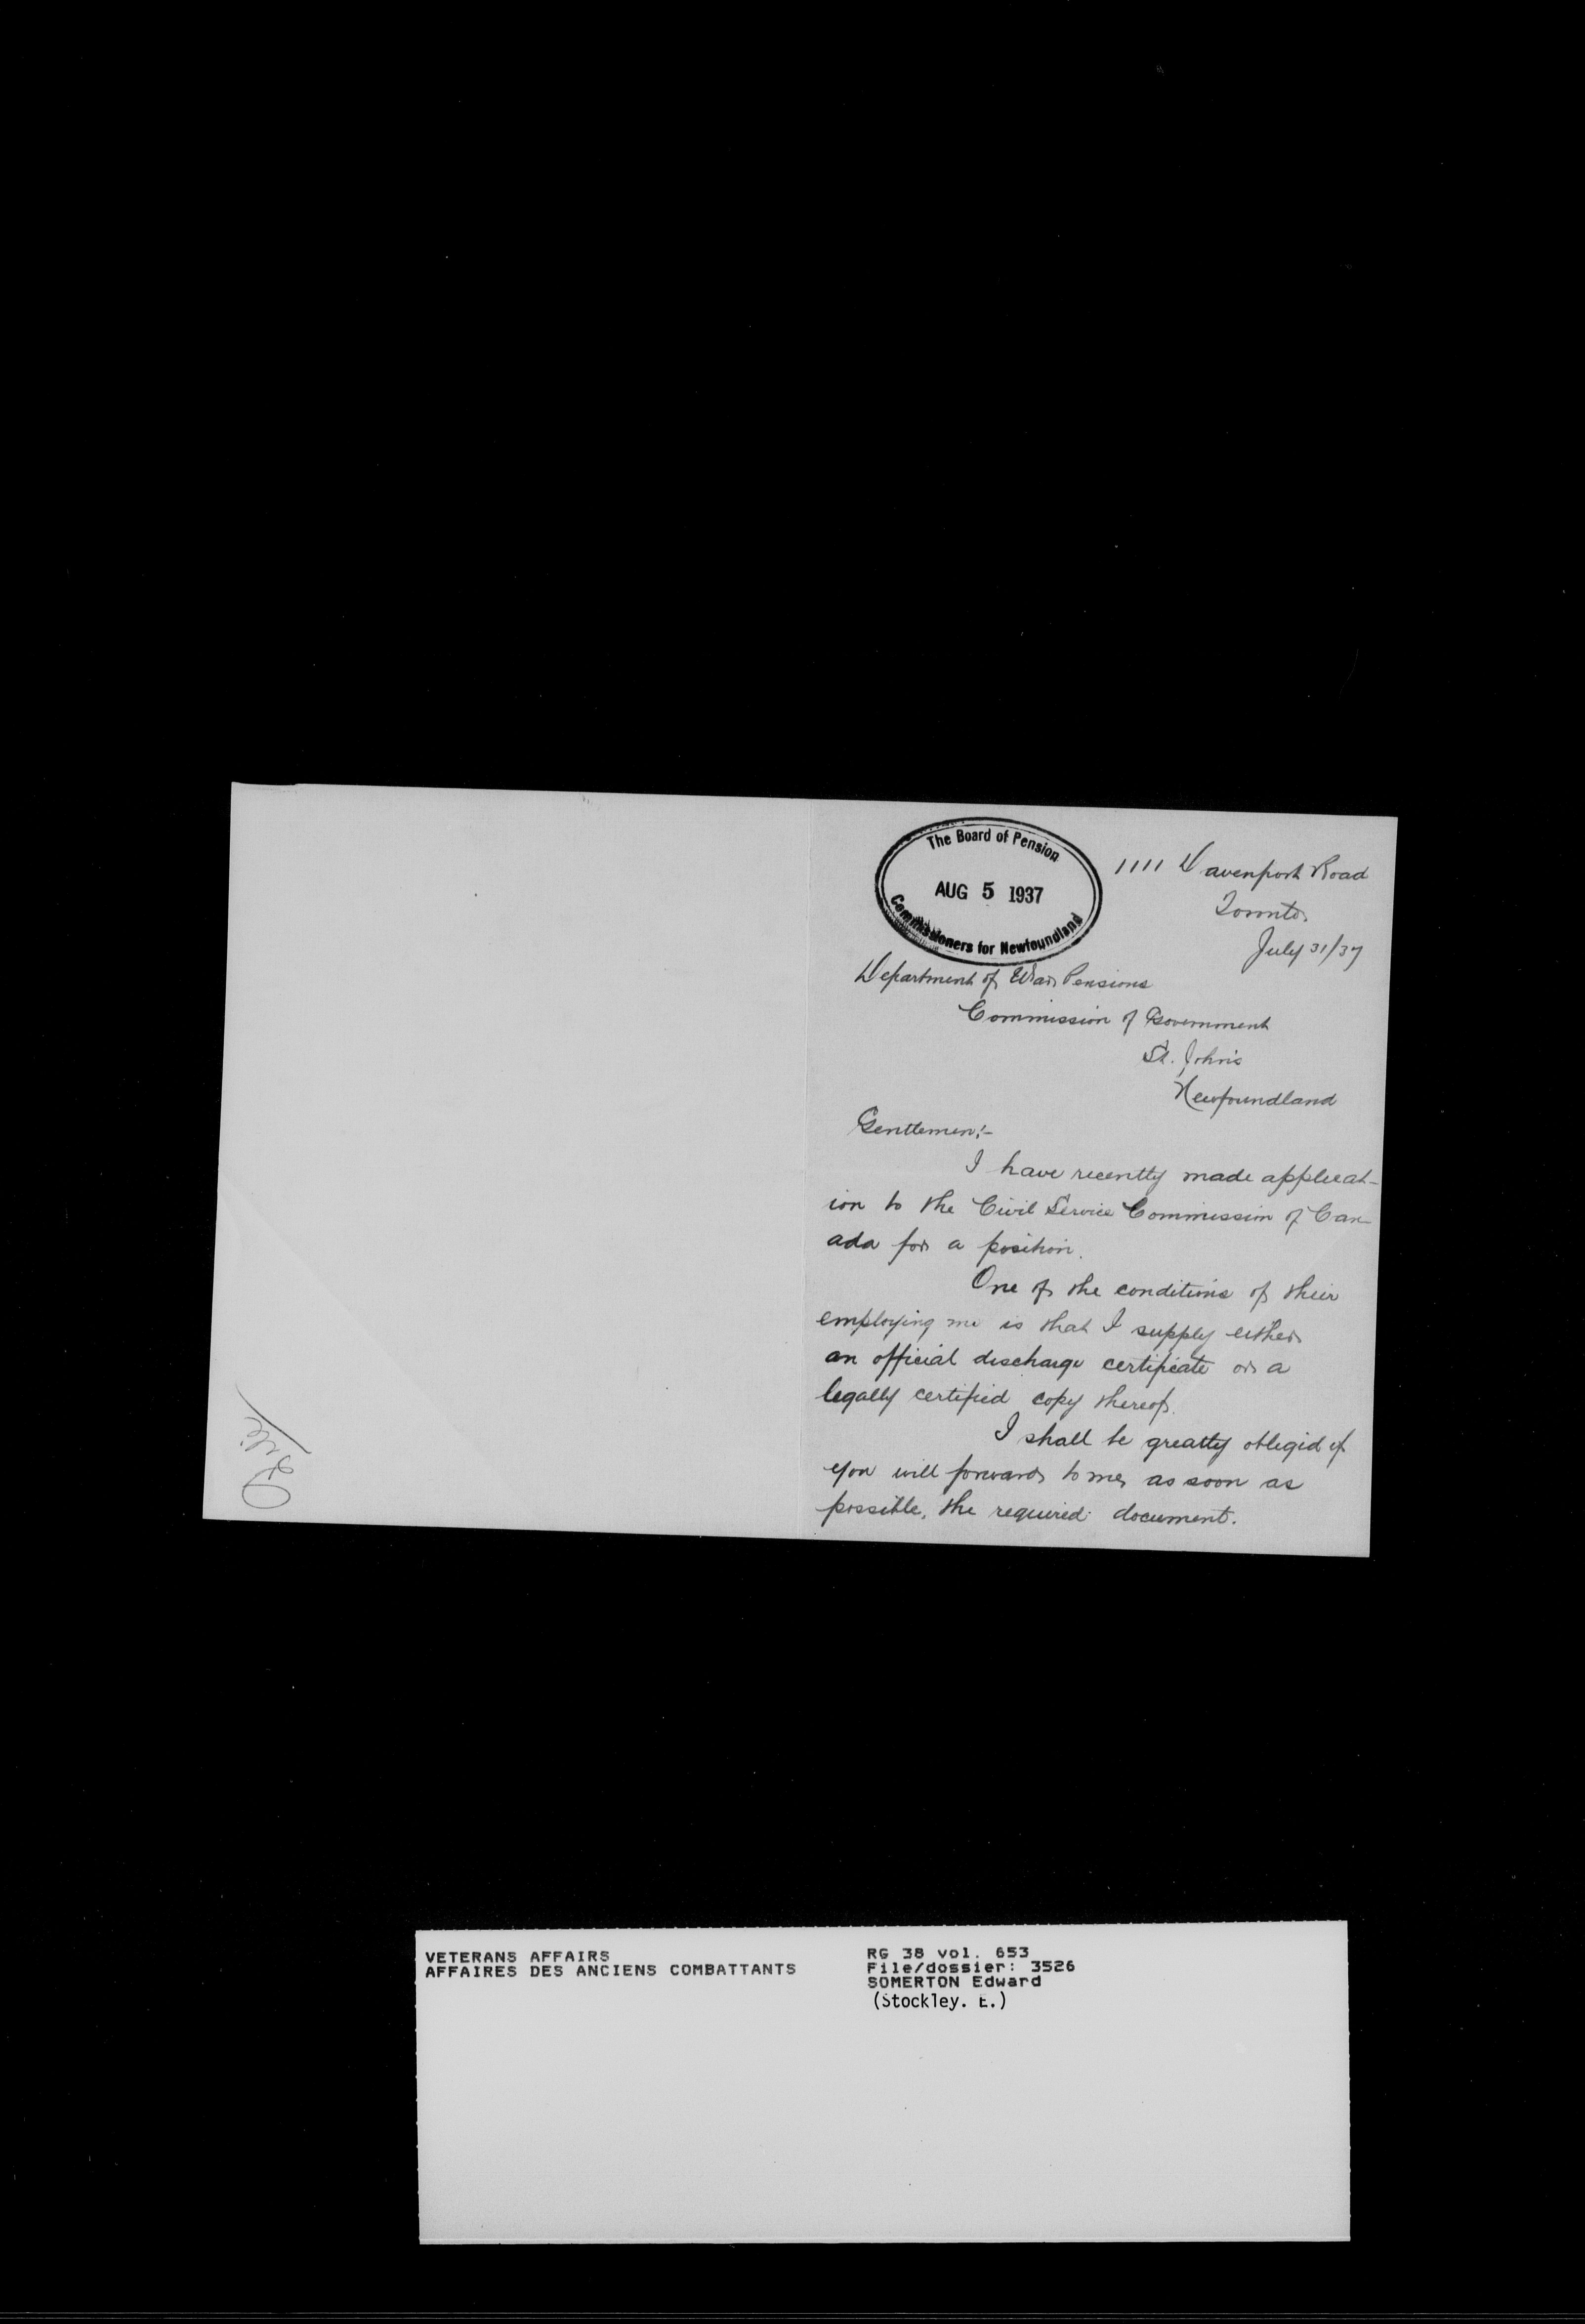 The Board of Pension
AUG 5 1937
Commissioners for Newfoundland
1111 Davenport Road
Toronto
July 31/37
Department of War Pensions
Commission of Government
St. John's
Newfoundland
Gentlemen:-
I have recently made applicat-
ion to the Civil Service Commission of Can-
ada for a position.
One of the conditions of their
employing me is that I supply either
an official discharge certificate or a
legally certified copy thereof.
I shall be greatly obliged if
you will forward to me, as soon as
possible, the required document.
VETERANS AFFAIRS
AFFAIRES DES ANCIENS COMBATTANTS
RG 38 vol. 653
File/dossier: 3526
SOMERTON Edward
(Stockley. E.)